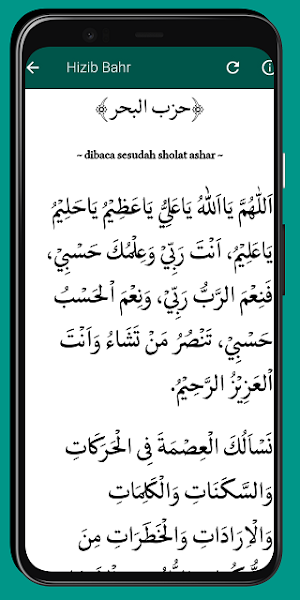 Hizib Bahr
﴿حزب البحر﴾
~ dibaca sesudah sholat ashar ~
اَللّٰهُمَّ يَااَللهُ يَاعَلِيُّ يَاعَظِيْمُ يَاحَلِيْمُ
يَاعَلِيْمُ، اَنْتَ رَبِّيْ وَعِلْمُكَ حَسْبِيْ،
فَنِعْمَ الرَّبُّ رَبِّيْ، وَنِعْمَ الْحَسْبُ
حَسْبِيْ، تَنْصُرُ مَنْ تَشَاءُ وَاَنْتَ
الْعَزِيْزُ الرَّحِيْمُ.
نَسْاَلُكَ الْعِصْمَةَ فِى الْحَرَكَاتِ
وَالسَّكَنَاتِ وَالْكَلِمَاتِ
وَالْاِرَادَاتِ وَالْخَطَرَاتِ مِنَ